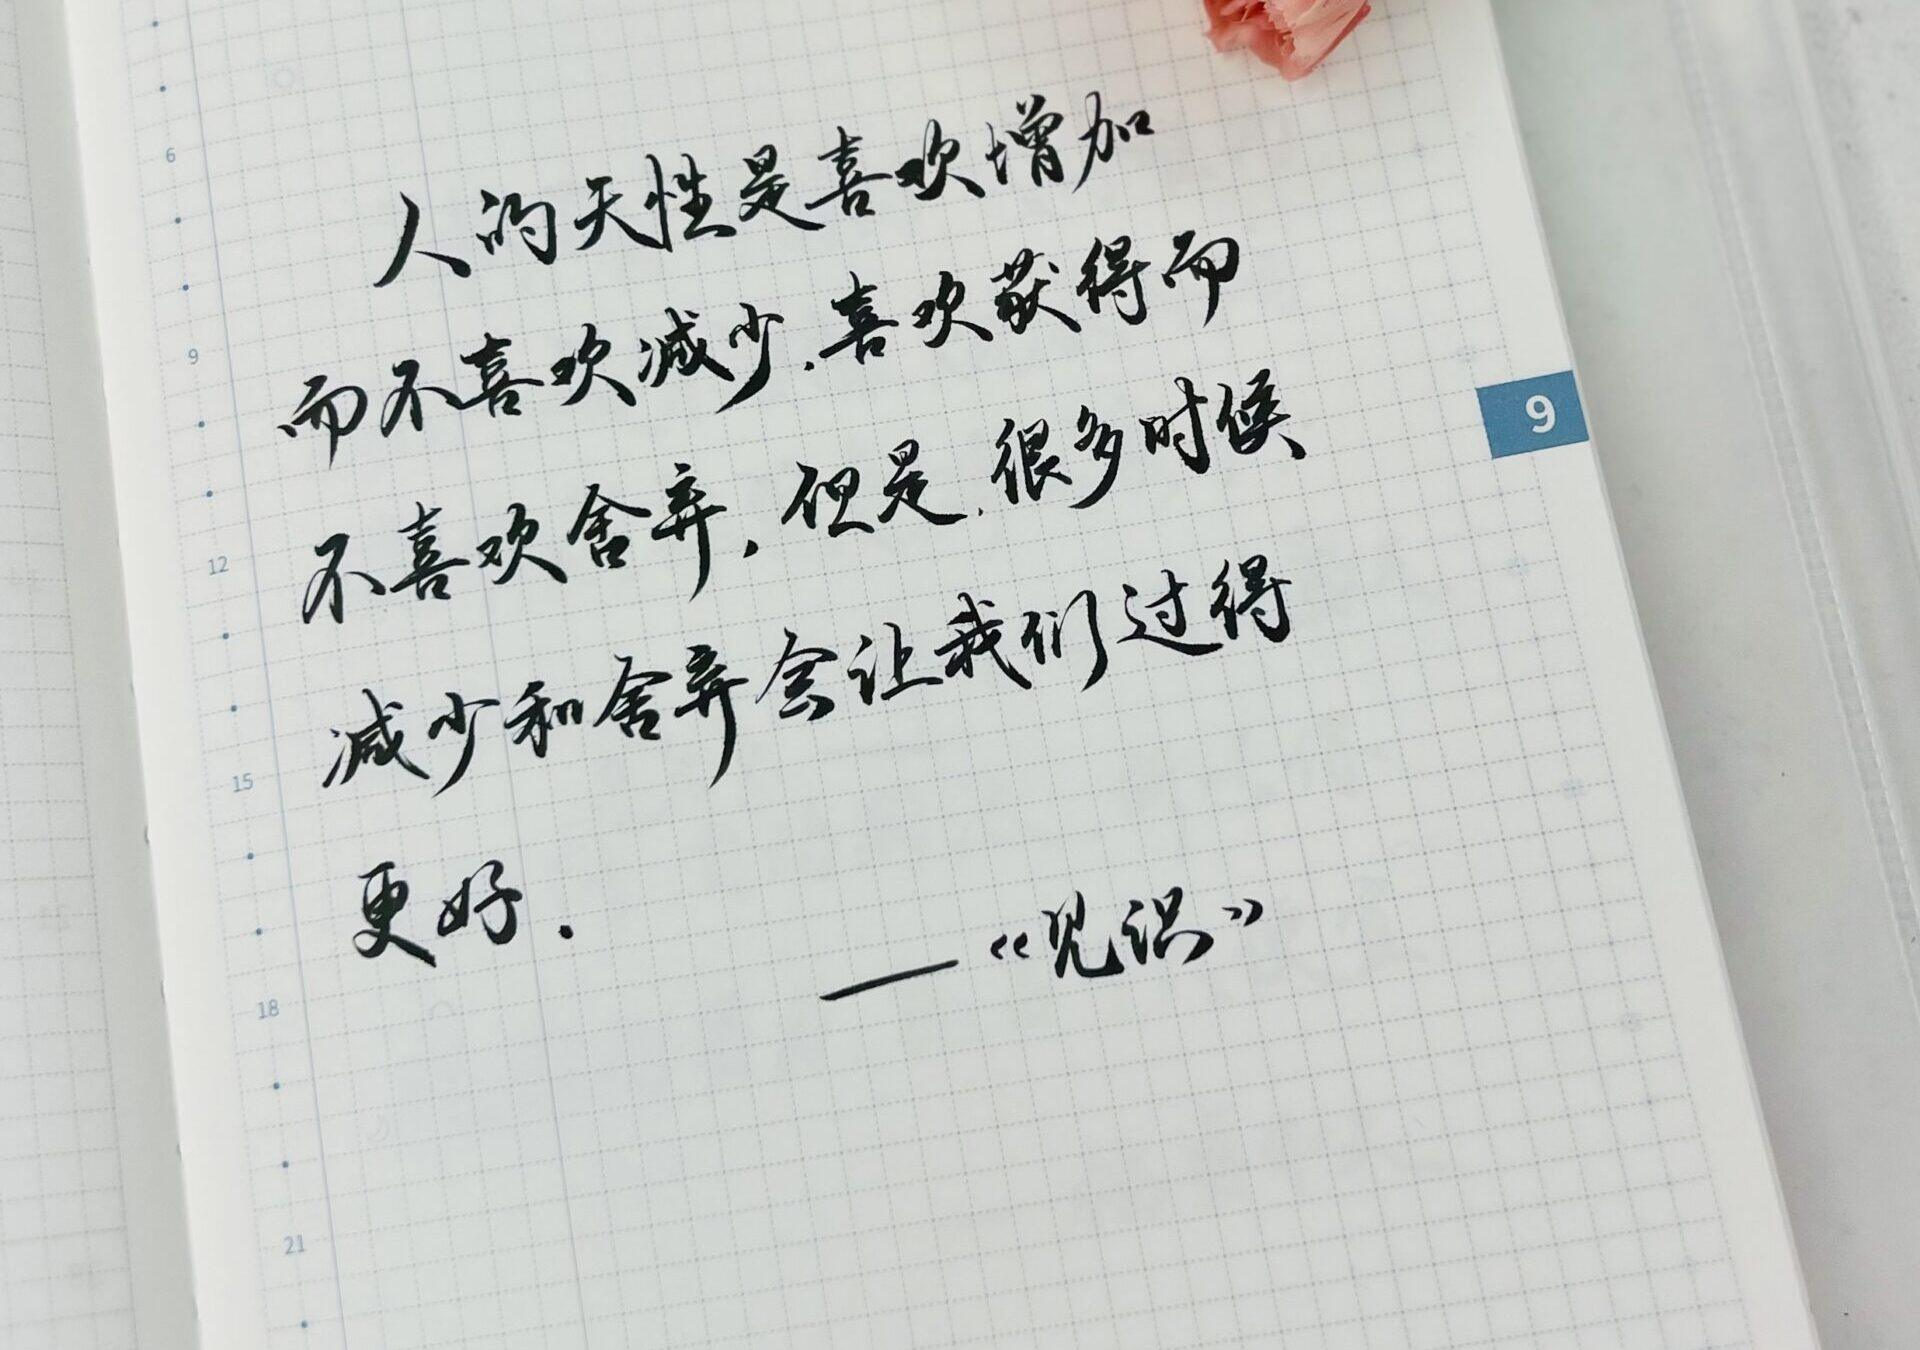 人的天性是喜欢增加
而不喜欢减少.喜欢获得而
不喜欢舍弃,但是,很多时候
减少和舍弃会让我们过得
更好.
——《见识》
6
9
12
15
18
21
9